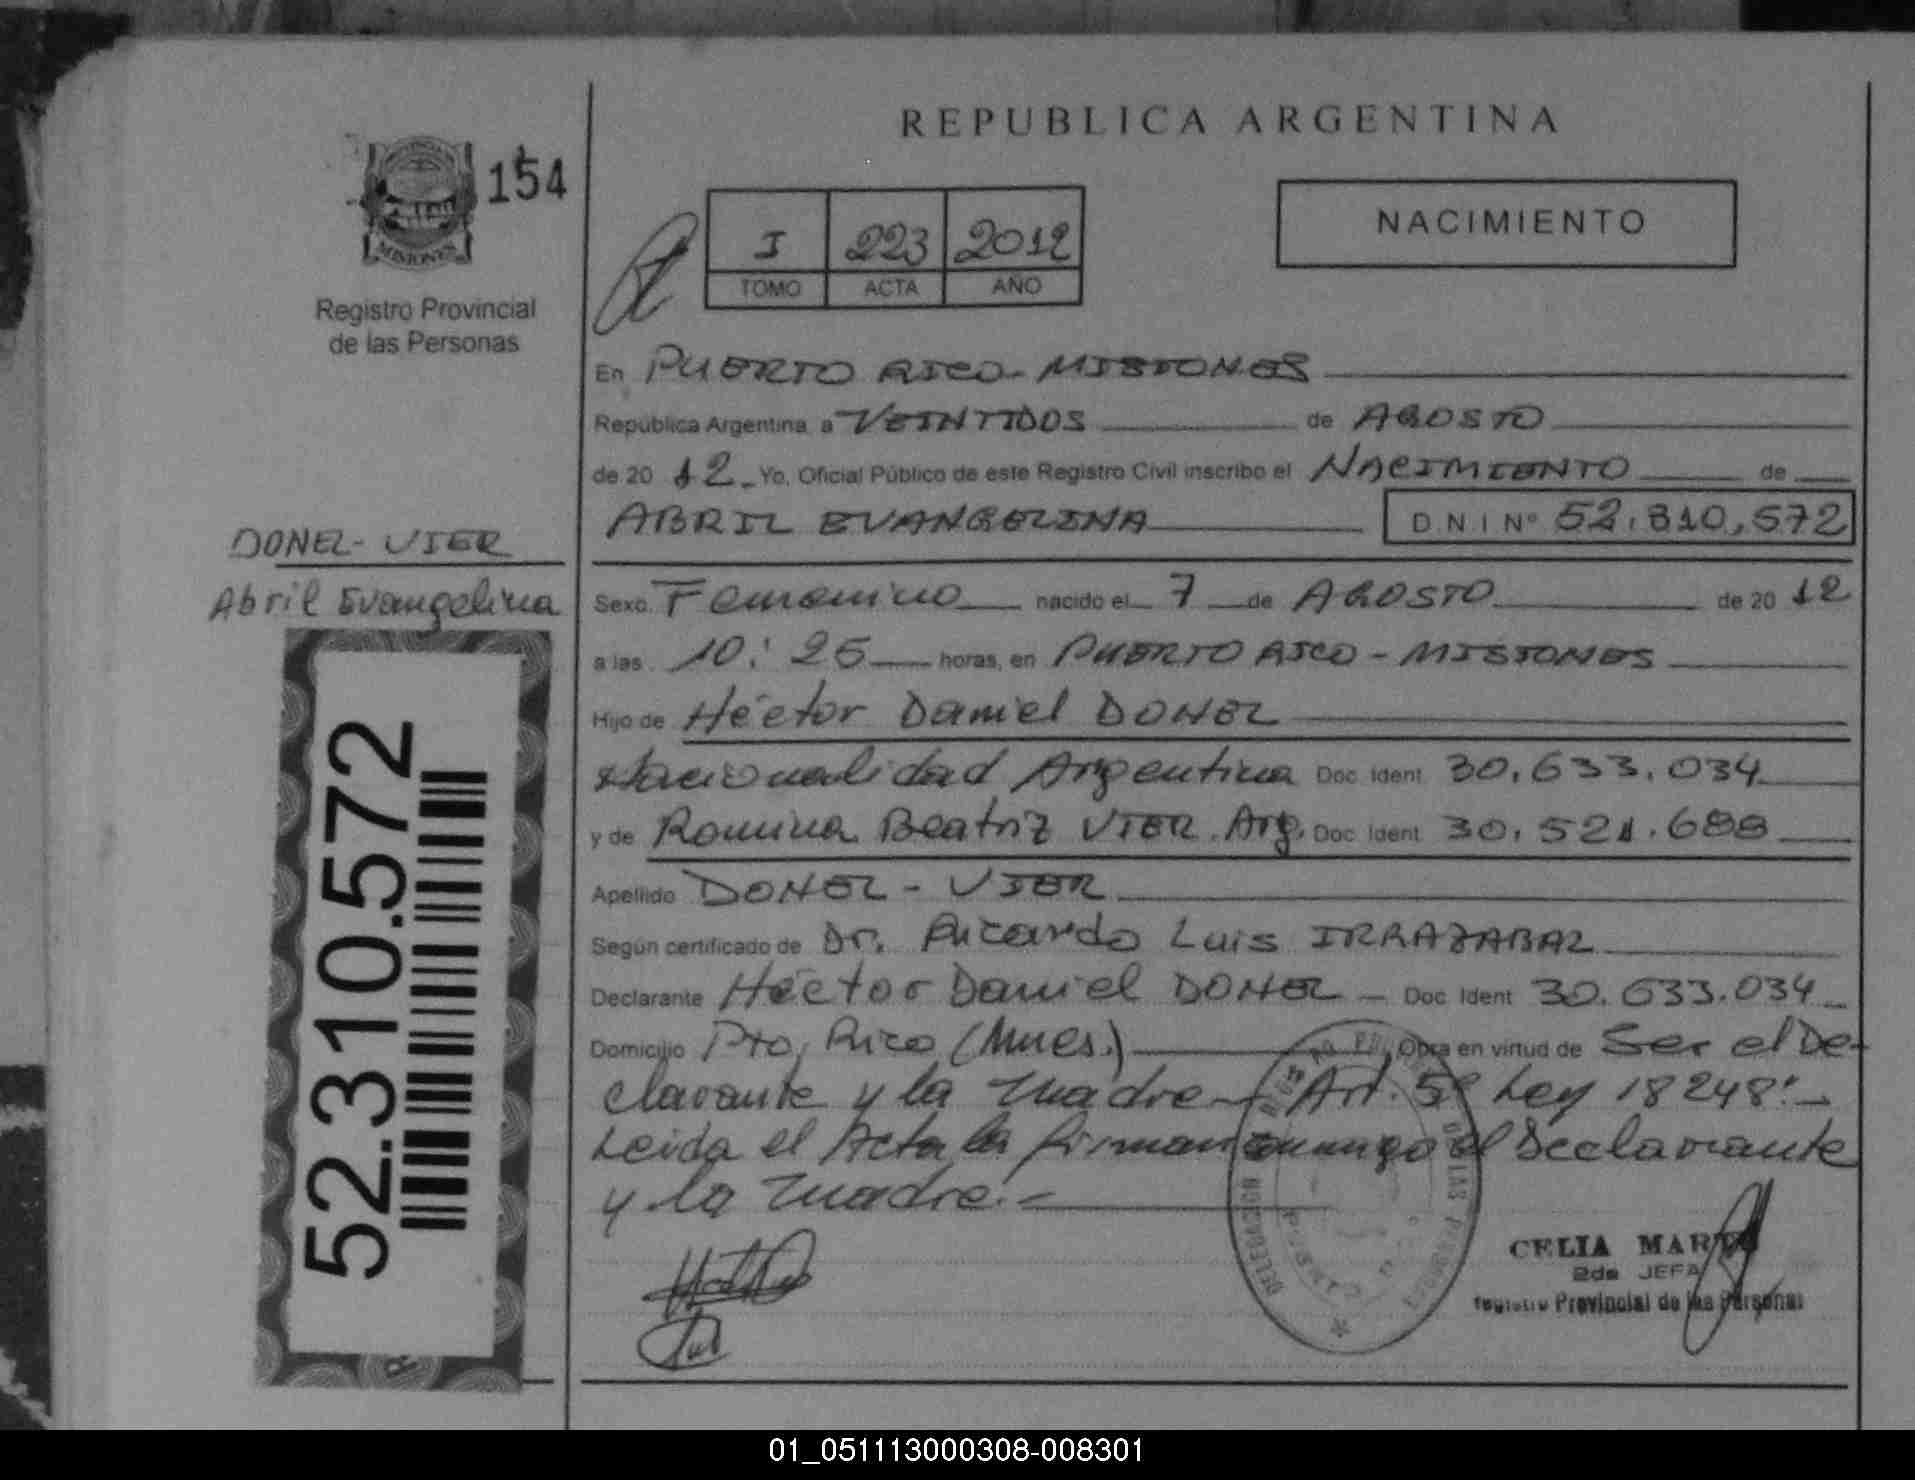 REPUBLICA ARGENTINA
154
MISIONES
Registro Provincial
de las Personas
I 223 2012
TOMO ACTA AÑO
NACIMIENTO
En PUERTO RICO - MISIONES
República Argentina a VEINTIDOS de AGOSTO
de 20 12 Yo, Oficial Público de este Registro Civil inscribo el NACIMIENTO de
ABRIL EVANGELINA D.N.I Nº 52.310.572
DONEL - VIER
Abril Evangelina
52.310.572
Sexo Femenino nacido el 7 de AGOSTO de 20 12
a las 10:25 horas, en PUERTO RICO - MISIONES
Hijo de Héctor Daniel DONEL
Nacionalidad Argentina Doc Ident 30.633.034
y de Romina Beatriz VIER. Arg. Doc Ident 30.521.688
Apellido DONEL - VIER
Según certificado de Dr. Ricardo Luis IRRAZABAL
Declarante Héctor Daniel DONEL Doc Ident 30.633.034
Domicilio Pto. Rico (Mnes.) Obra en virtud de Ser el De-
clarante y la Madre - Art. 5º Ley 18248.-
Leida el Acta la firman conmigo el Declarante
y la Madre.-
CELIA
2da JEFA
Registro Provincial de las Personas
01_051113000308-008301